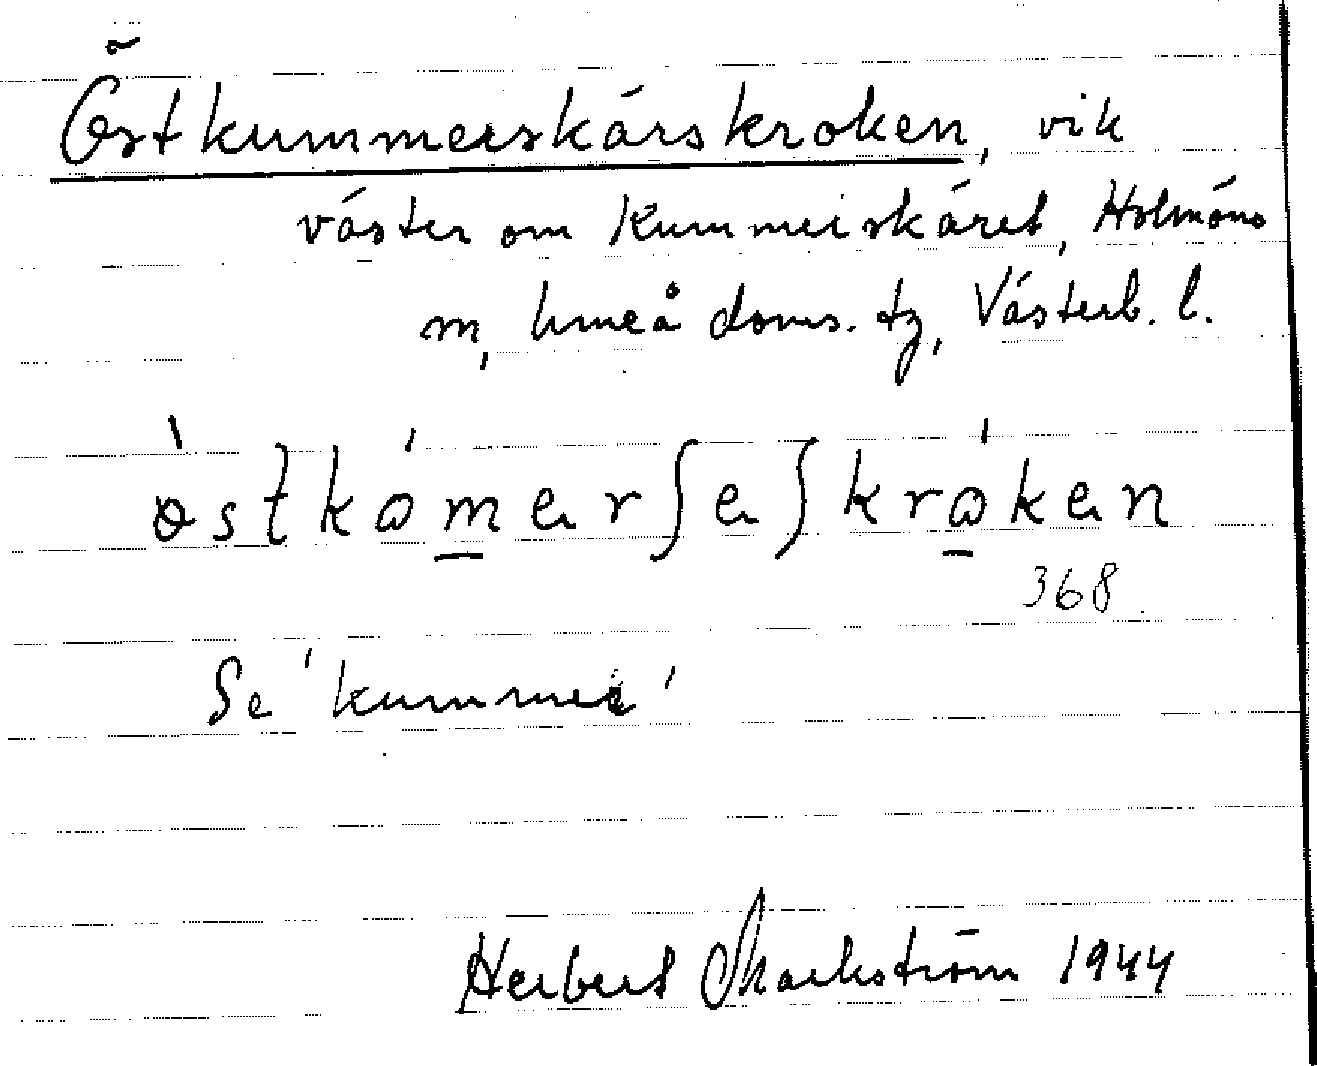 Östkummerskärskroken, vik
väster om Kummerskäret, Holmöns
m, Umeå doms. tg, Västerb. l.
òstkómerʃeʃkróken
368
Se 'kummer'
Herbert Markström 1944